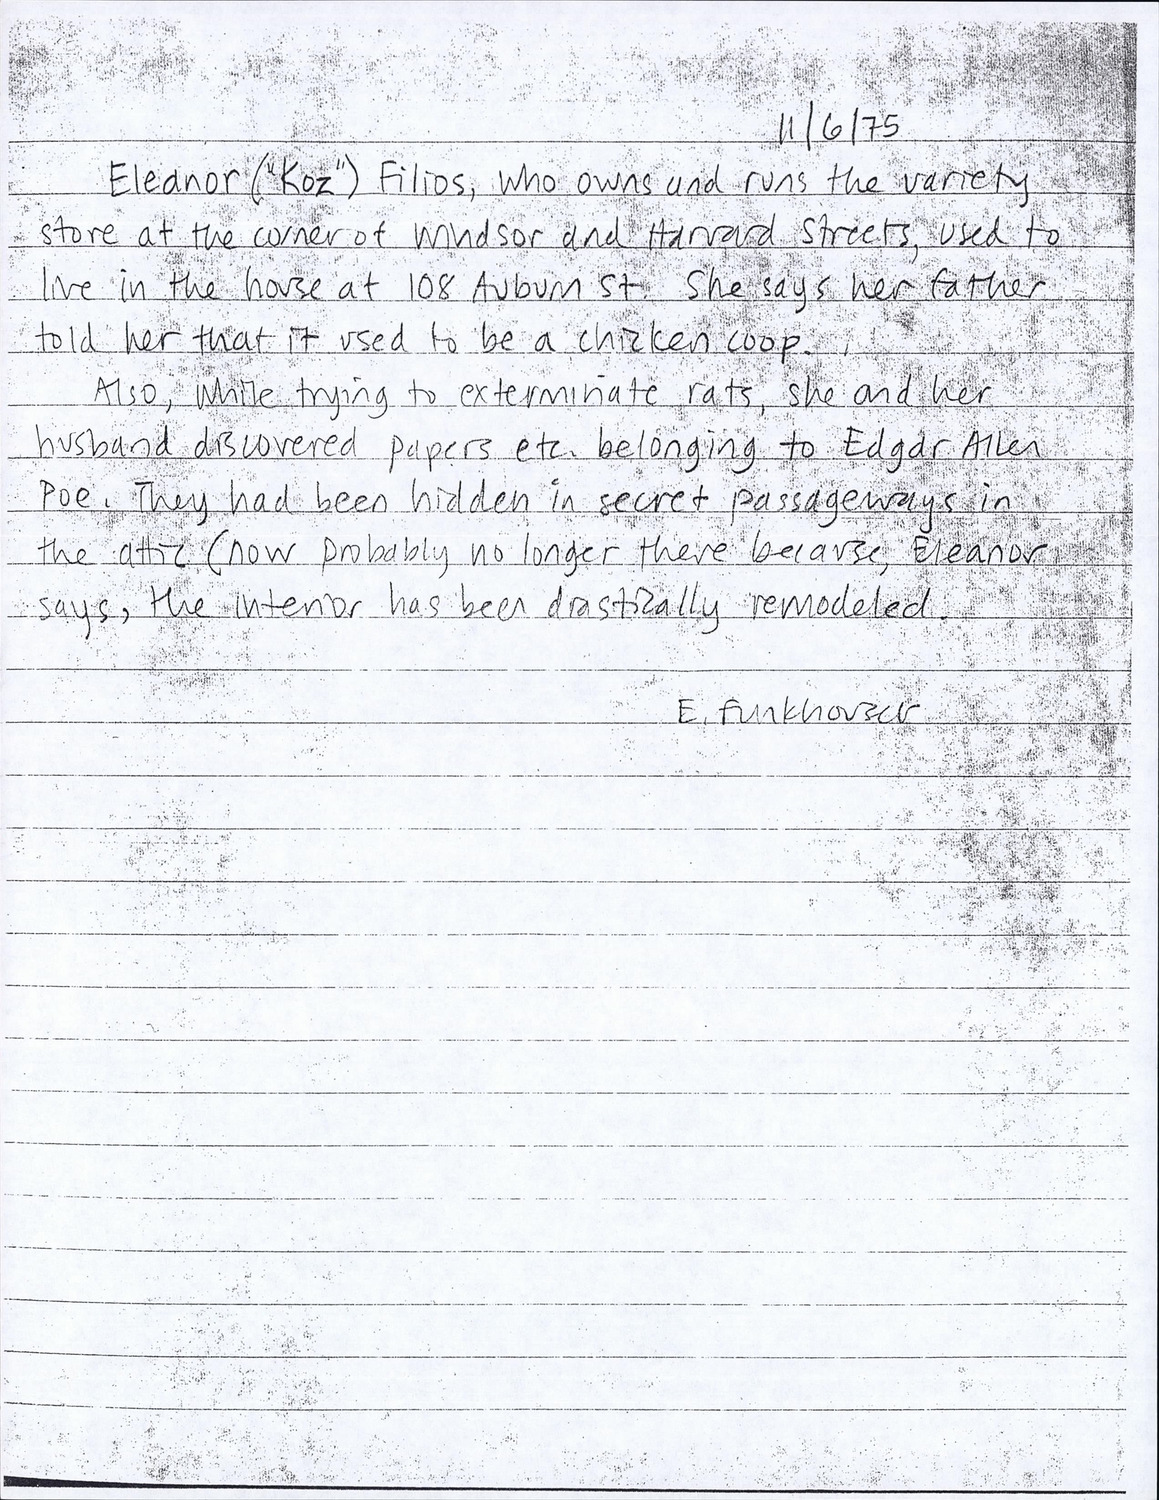 11/6/75
Eleanor ("Koz") Filios, who owns and runs the variety
store at the corner of Windsor and Harvard Streets, used to
live in the house at 108 Auburn St. She says her father
told her that it used to be a chicken coop.
Also, while trying to exterminate rats, she and her
husband discovered papers etc. belonging to Edgar Allen
Poe. They had been hidden in secret passageways in
the attic (now probably no longer there because, Eleanor
says, the interior has been drastically remodeled.
E. Funkhouser